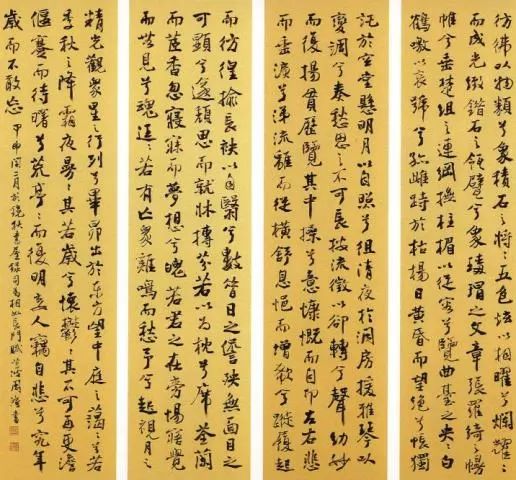 彷彿以物類兮象積石之將々五色炫以相曜兮爛耀々
而成光緻錯石之瓴甓兮象瑇瑁之文章張羅綺之幔
帷兮垂楚組之連綱撫柱楣以從容兮覽曲臺之央々白
鶴噭以哀號兮孤雌跱於枯楊日黃昏而望絕兮悵獨
託於空堂懸明月以自照兮徂清夜於洞房援雅琴以
變調兮奏愁思之不可長按流徵以卻轉兮聲幼妙
而復揚貫歷覽其中操兮意慷慨而自卬左右悲
而垂淚兮涕流離而從橫舒息悒而增欷兮蹝履起
而彷徨揄長袂以自翳兮數昔日之諐殃無面目之
可顯兮遂頹思而就牀摶芬若以為枕兮席荃蘭
而茝香忽寢寐而夢想兮魄若君之在旁惕寤覺
而無見兮魂迋々若有亡眾雞鳴而愁予兮起視月之
精光觀眾星之行列兮畢昴出於東方望中庭之藹々兮若
季秋之降霜夜曼々其若歲兮懷鬱々其不可再更澹
偃蹇而待曙兮荒亭々而復明妾人竊自悲兮究年
歲而不敢忘 甲申閏二月於 書屋錄司馬相如長門賦 周 書